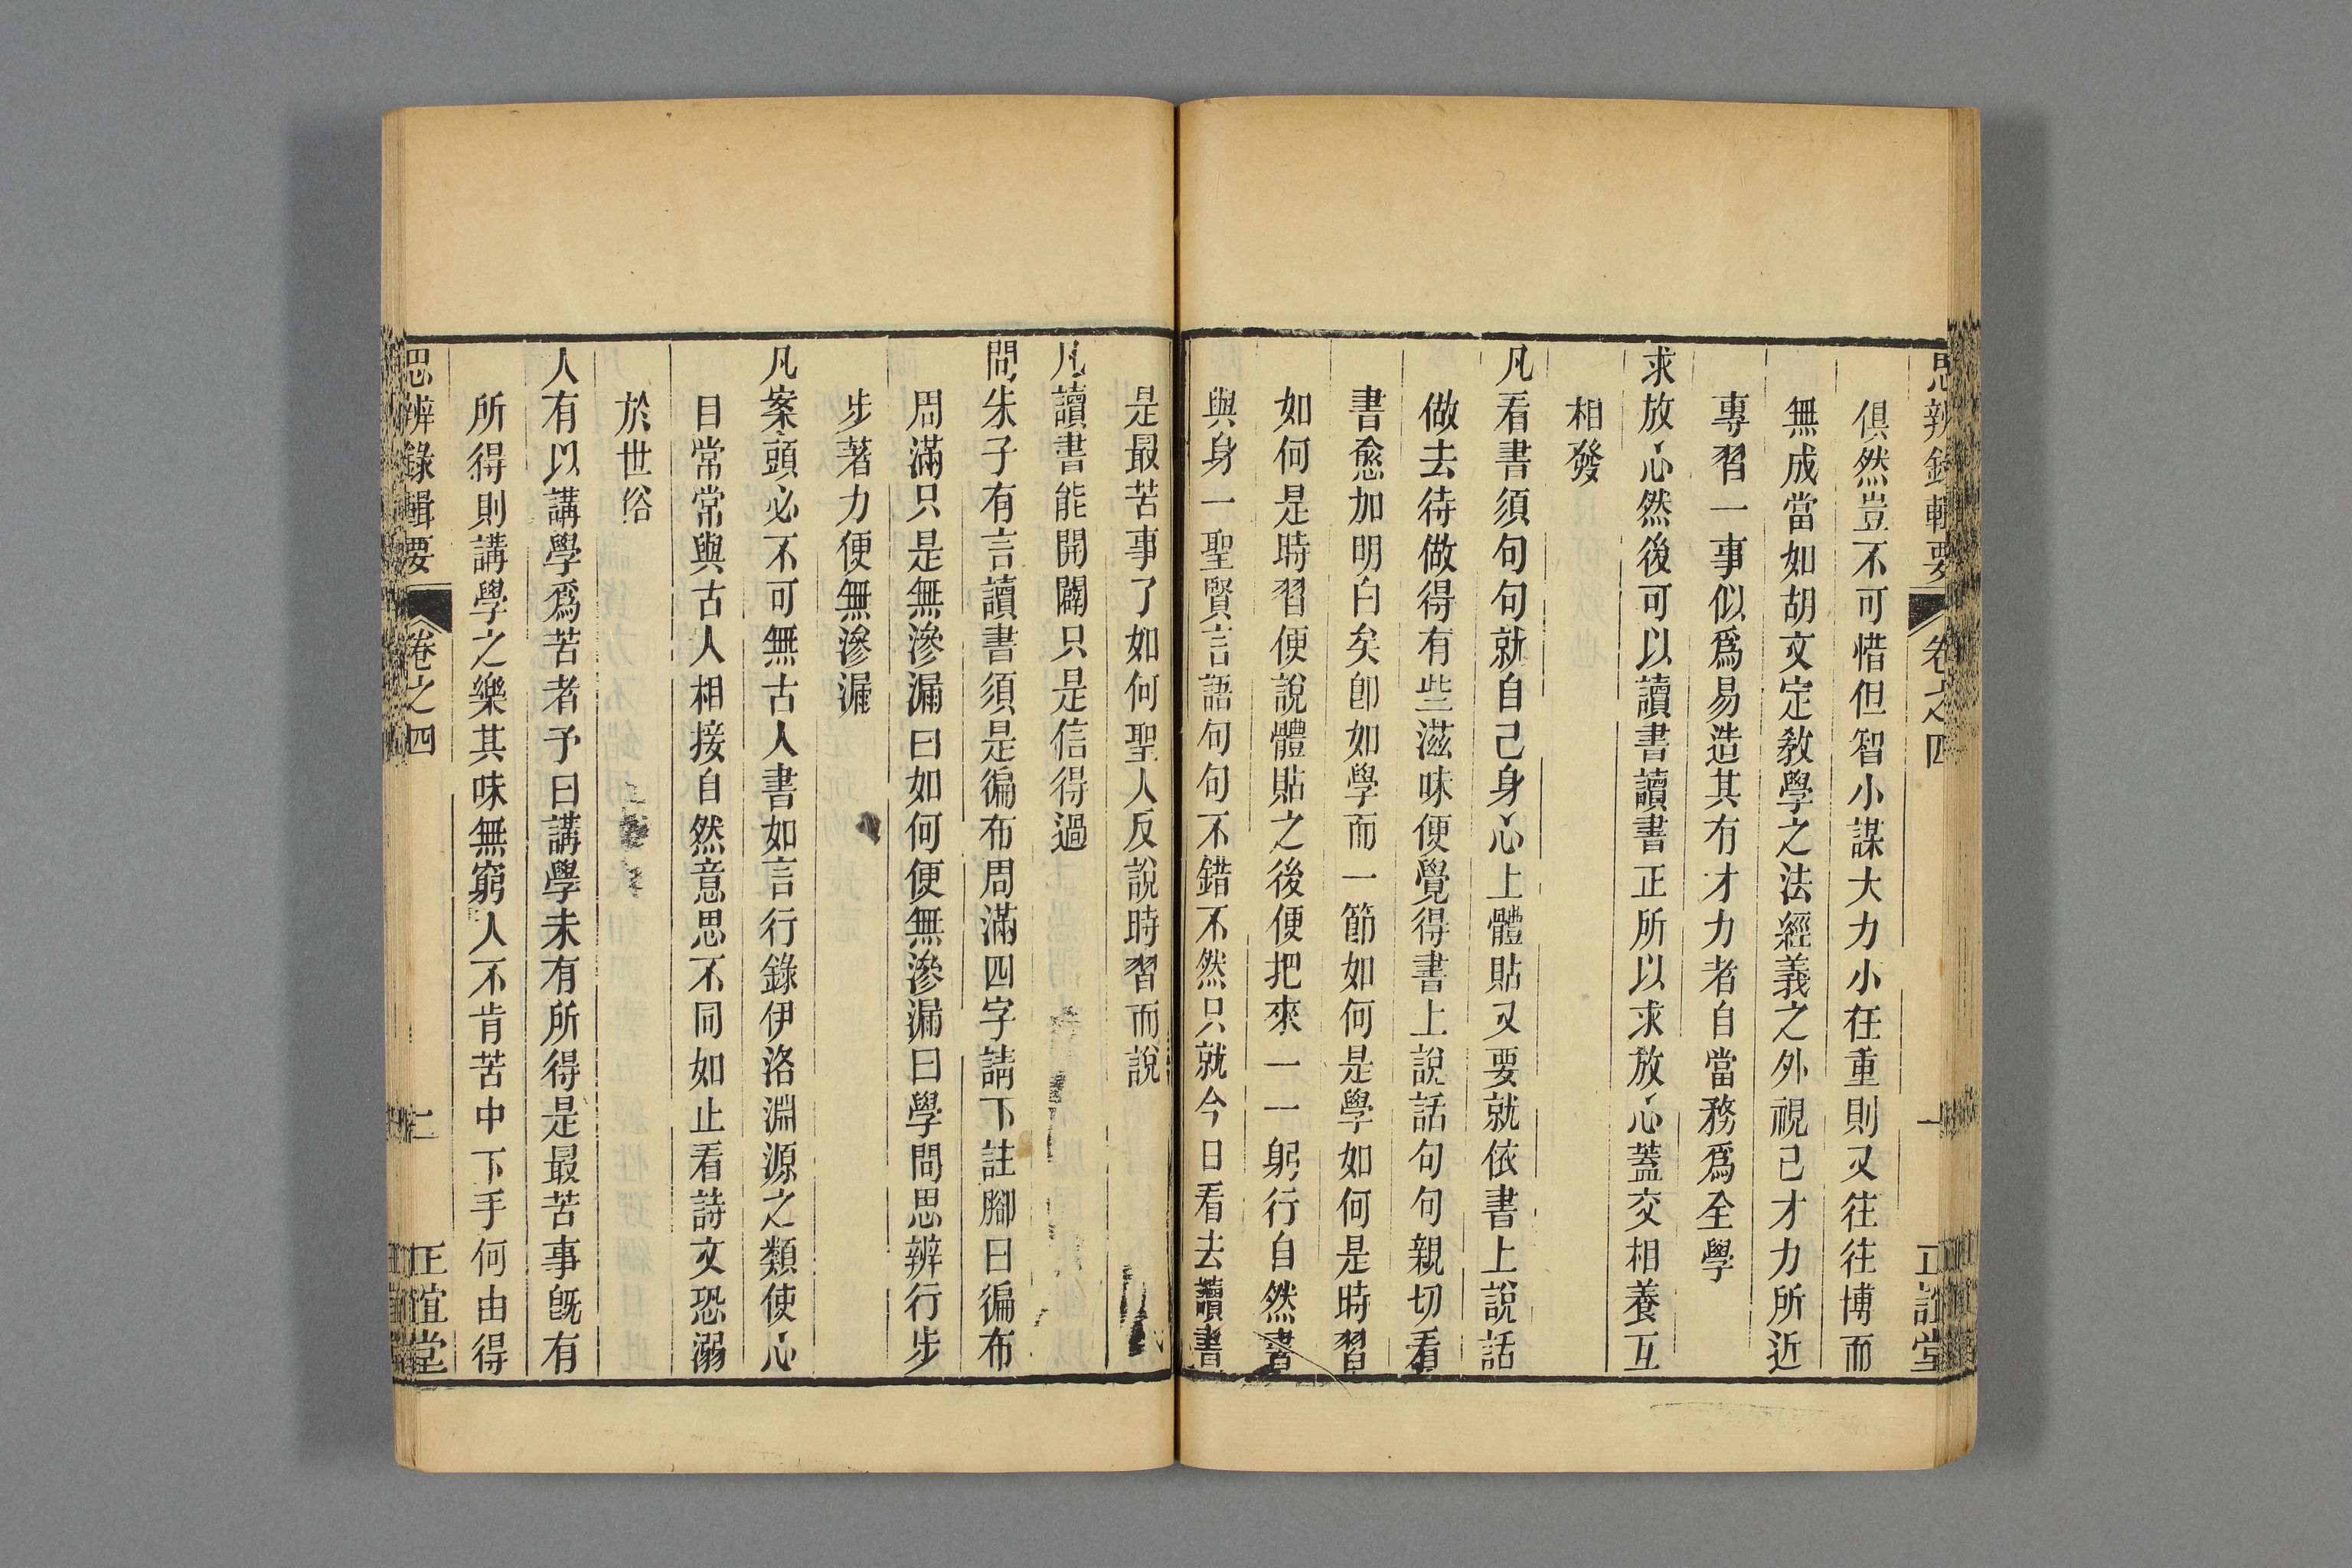 思辨錄輯要 卷之四 一 正誼堂
俱然豈不可惜但智小謀大力小任重則又往往博而
無成當如胡文定敎學之法經義之外視己才力所近
專習一事似爲易造其有才力者自當務爲全學
求放心然後可以讀書讀書正所以求放心蓋交相養互
相發
凡看書須句句就自己身心上體貼又要就依書上說話
做去待做得有些滋味便覺得書上說話句句親切看
書愈加明白矣卽如學而一節如何是學如何是時習
如何是時習便說體貼之後便把來一一躬行自然書
與身一聖賢言語句句不錯不然只就今日看去讀書
是最苦事了如何聖人反說時習而說
凡讀書能開闢只是信得過
問朱子有言讀書須是徧布周滿四字請下註腳曰徧布
周滿只是無滲漏曰如何便無滲漏曰學問思辨行步
步著力便無滲漏
凡案頭必不可無古人書如言行錄伊洛淵源之類使心
目常常與古人相接自然意思不同如止看詩文恐溺
於世俗
人有以講學爲苦者予曰講學未有所得是最苦事旣有
所得則講學之樂其味無窮人不肯苦中下手何由得
思辨錄輯要 卷之四 二 正誼堂